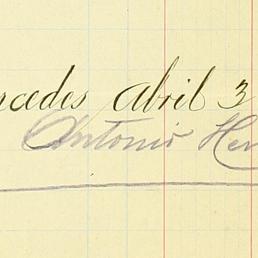 rcedes Abril 3
Antonio Her